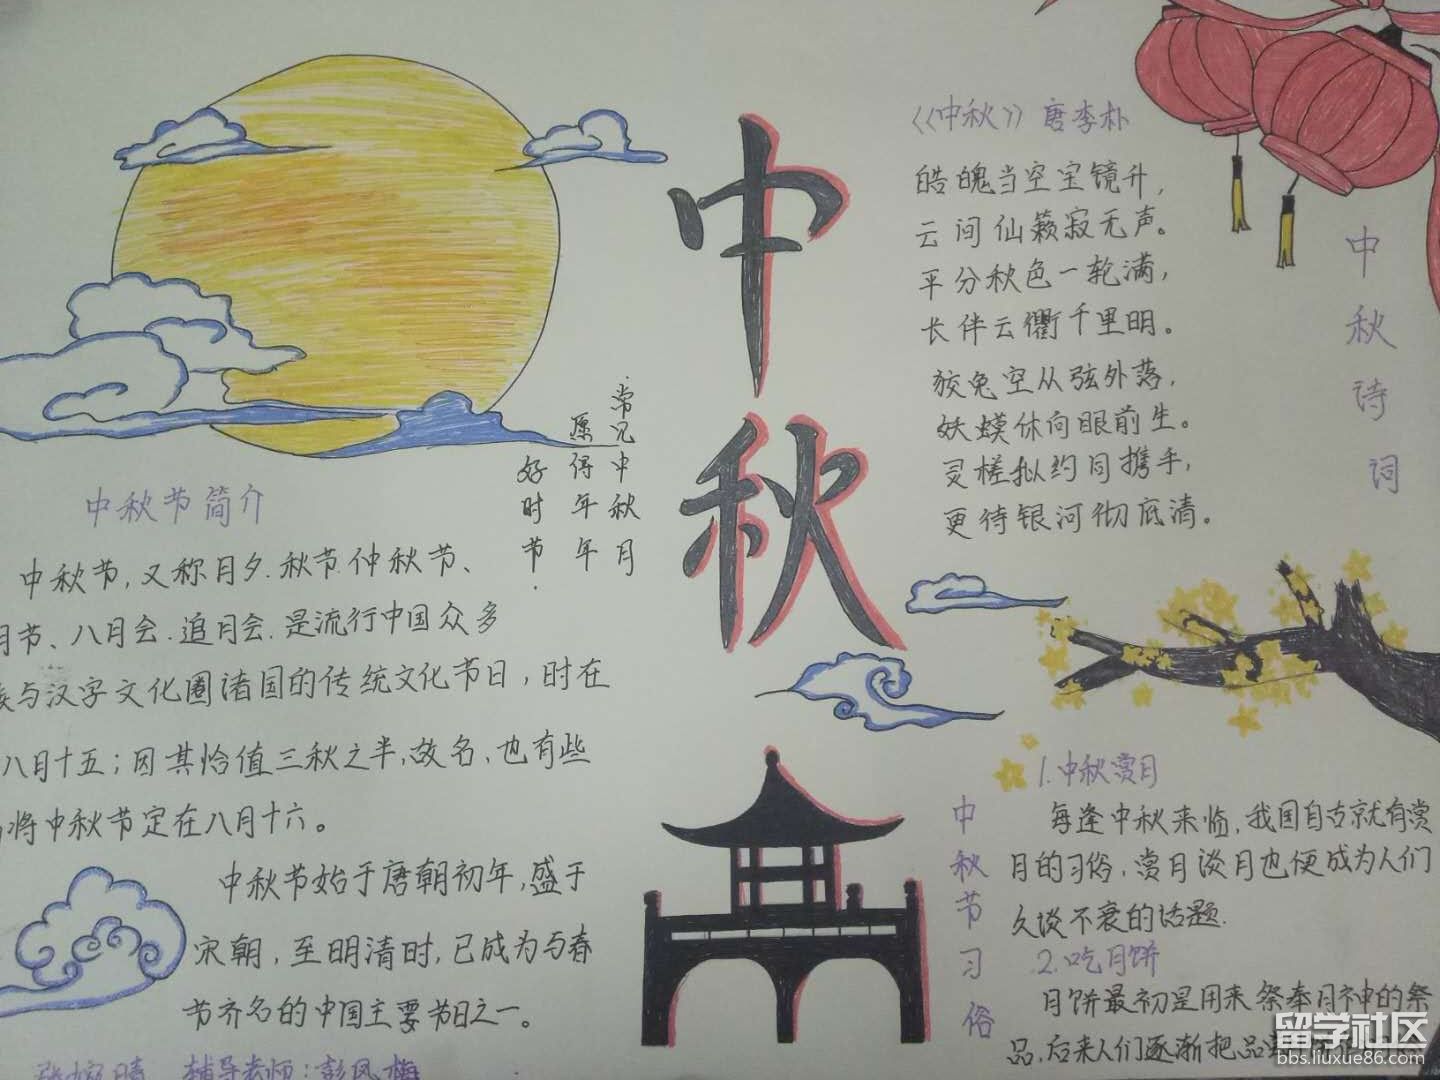 中秋
常见中秋月
愿得年年
好时节.
中秋节简介
中秋节,又称月夕.秋节.仲秋节、
月节、八月会.追月会.是流行中国众多
族与汉字文化圈诸国的传统文化节日,时在
八月十五;因其恰值三秋之半,故名,也有些
将中秋节定在八月十六。
中秋节始于唐朝初年,盛于
宋朝,至明清时,已成为与春
节齐名的中国主要节日之一。
辅导老师:彭凤梅
《中秋》 唐李朴
皓魄当空宝镜升,
云间仙籁寂无声。
平分秋色一轮满,
长伴云衢千里明。
狡兔空从弦外落,
妖蟆休向眼前生。
灵槎拟约同携手,
更待银河彻底清。
中秋诗词
中秋节习俗
1.中秋赏月
每逢中秋来临,我国自古就有赏
月的习俗,赏月谈月也便成为人们
久谈不衰的话题.
2.吃月饼
月饼最初是用来祭奉月神的祭
品,后来人们逐渐把品
留学社区
bbs.liuxue86.com